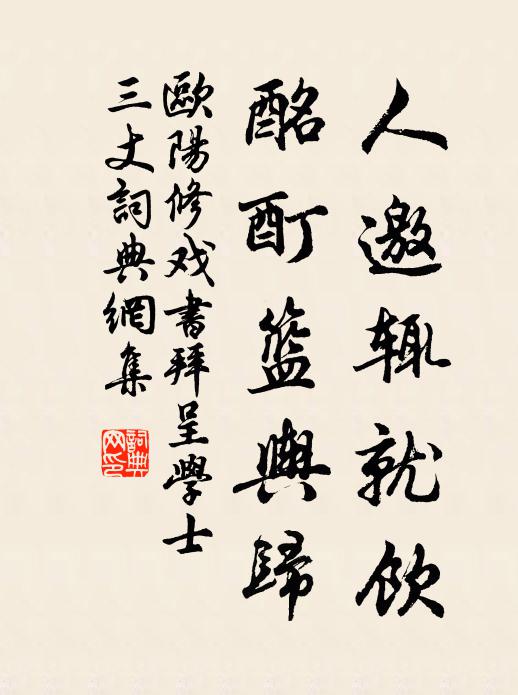 人邀辄就饮
酩酊籃輿歸
歐陽修戏書拜呈學士
三丈詞典網集
詞典网印